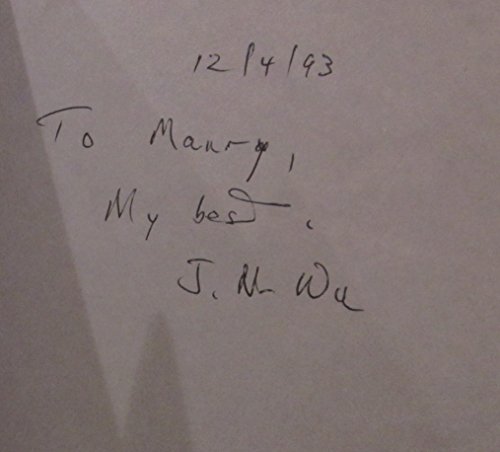 12/4/93
To Maury,
My best.
J. Wu